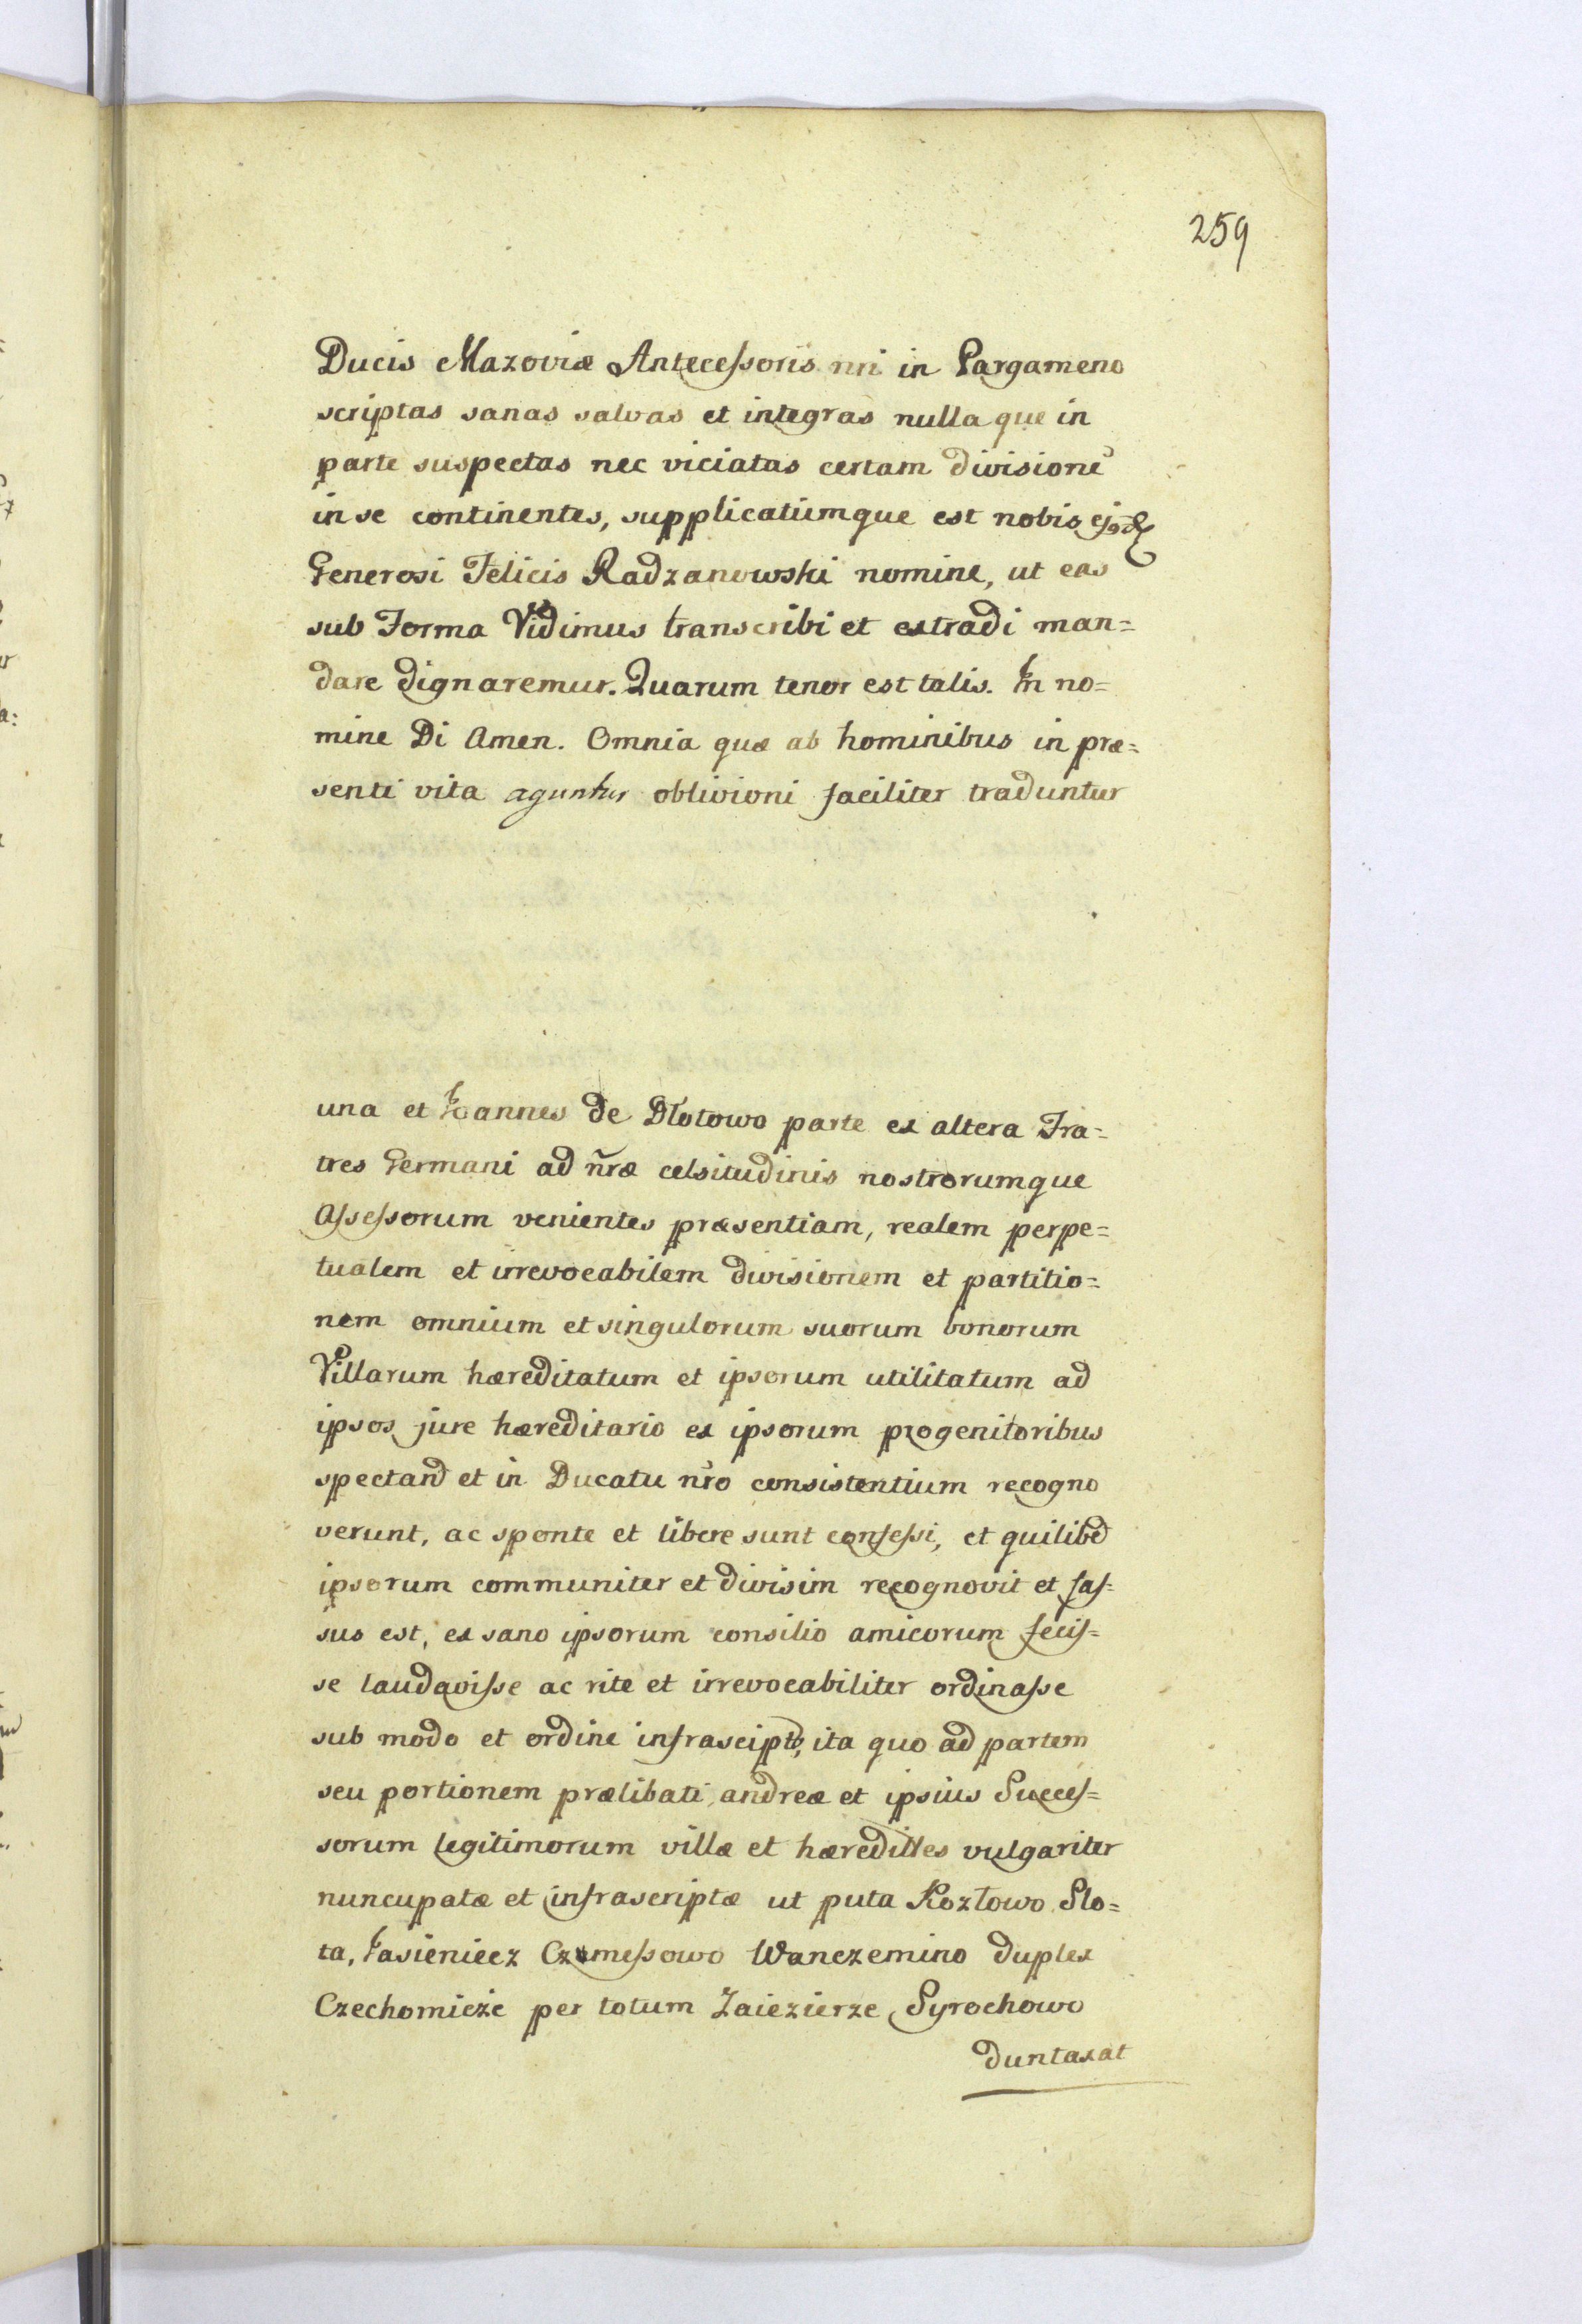 259
Ducis Mazoviæ Antecessoris nri in Pargameno
scriptas sanas salvas et integras nulla que in
parte suspectas nec viciatas certam divisionē
in se continentes, supplicatumque est nobis
Generosi Felicis Radzanowski nomine, ut eas
sub Forma Vidimus transcribi et extradi man=
dare dignaremur. Quarum tenor est talis. In no=
mine Di Amen. Omnia quæ ab hominibus in præ=
senti vita aguntur oblivioni faciliter traduntur
una et Joannes de Dłotowo parte ex altera Fra=
tres Germani ad nr̃æ celsitudinis nostrorumque
Assessorum venientes præsentiam, realem perpe=
tualem et irrevocabilem divisionem et partitio=
nem omnium et singulorum suorum bonorum
Villarum hæreditatum et ipsorum utilitatum ad
ipsos jure hæreditario ex ipsorum progenitoribus
spectand et in Ducatu nr̃o consistentium recogno
verunt, ac sponte et libere sunt confessi, et quilibd
ipsorum communiter et divisim recognovit et fas=
sus est, ex sano ipsorum consilio amicorum fecis=
se laudavisse ac rite et irrevocabiliter ordinasse
sub modo et ordine infrascipto, ita quo ad partem
seu portionem prælibati andreæ et ipsius Succes=
sorum legitimorum villæ et hæredittes vulgariter
nuncupatæ et infrascriptæ ut puta Kozłowo Slo=
ta, Jasieniecz Czemessowo Wanczemino duplex
Czechomieże per totum Zaiezierze Syrochowo
duntaxat